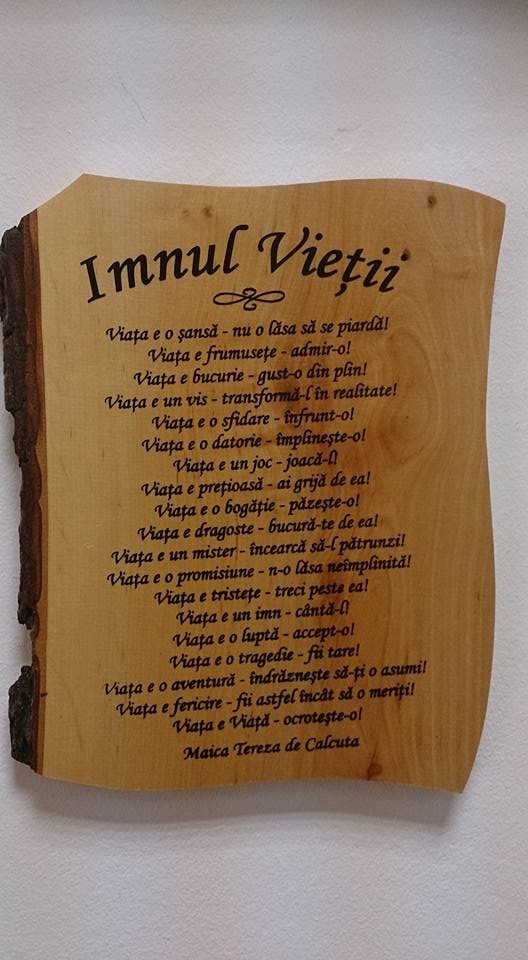 Imnul Vieții
Viața e o șansă - nu o lăsa să se piardă!
Viața e frumusețe - admir-o!
Viața e bucurie - gust-o din plin!
Viața e un vis - transformă-l în realitate!
Viața e o sfidare - înfrunt-o!
Viața e o datorie - împlinește-o!
Viața e un joc - joacă-l!
Viața e prețioasă - ai grijă de ea!
Viața e o bogăție - păzește-o!
Viața e dragoste - bucură-te de ea!
Viața e un mister - încearcă să-l pătrunzi!
Viața e o promisiune - n-o lăsa neîmplinită!
Viața e tristețe - treci peste ea!
Viața e un imn - cântă-l!
Viața e o luptă - accept-o!
Viața e o tragedie - fii tare!
Viața e o aventură - îndrăznește să-ți o asumi!
Viața e fericire - fii astfel încât să o meriți!
Viața e Viață - ocrotește-o!
Maica Tereza de Calcuta